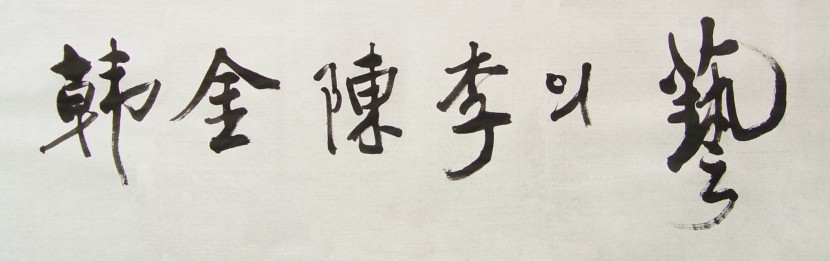 韓金陳李의 藝